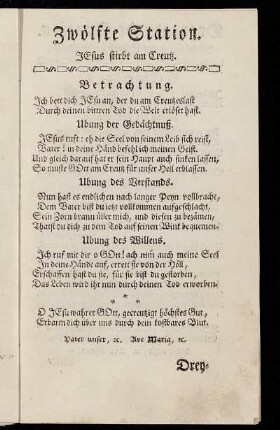 Zwölfte Station.
JEsus stirbt am Creutz.
Betrachtung.
Ich bett dich JEsu an, der du am Creutzeslast
Durch deinen bittren Tod die Welt erlöset hast.
Ubung der Gedächtnuß.
JEsus ruft: eh die Seel von seinem Leib sich reist,
Vater! in deine Händ befehl ich meinen Geist.
Und gleich darauf hat er sein Haupt auch sincken lassen,
So muste GOtt am Creutz für unser Heil erblassen.
Ubung des Verstands.
Nun hast es endlichen nach langer Peyn vollbracht,
Dem Vater bist du jetzt vollkommen aufgeschlacht,
Sein Zorn brann über mich, und diesen zu bezämen,
Thatst du dich zu dem Tod auf seinen Winck bequemen.
Ubung des Willens.
Ich ruf mit dir o GOtt! ach nim̃ auch meine Seel
In deine Hände auf, errett sie von der Höll,
Erschaffen hast du sie, für sie bist du gestorben,
Das Leben wird ihr nun durch deinen Tod erworben.
* * *
O JEsu wahrer GOtt, gecreutzigt höchstes Gut,
Erbarm dich über uns durch dein kostbares Blut.
Pater unser, ꝛc. Ave Maria, ꝛc.
Drey-